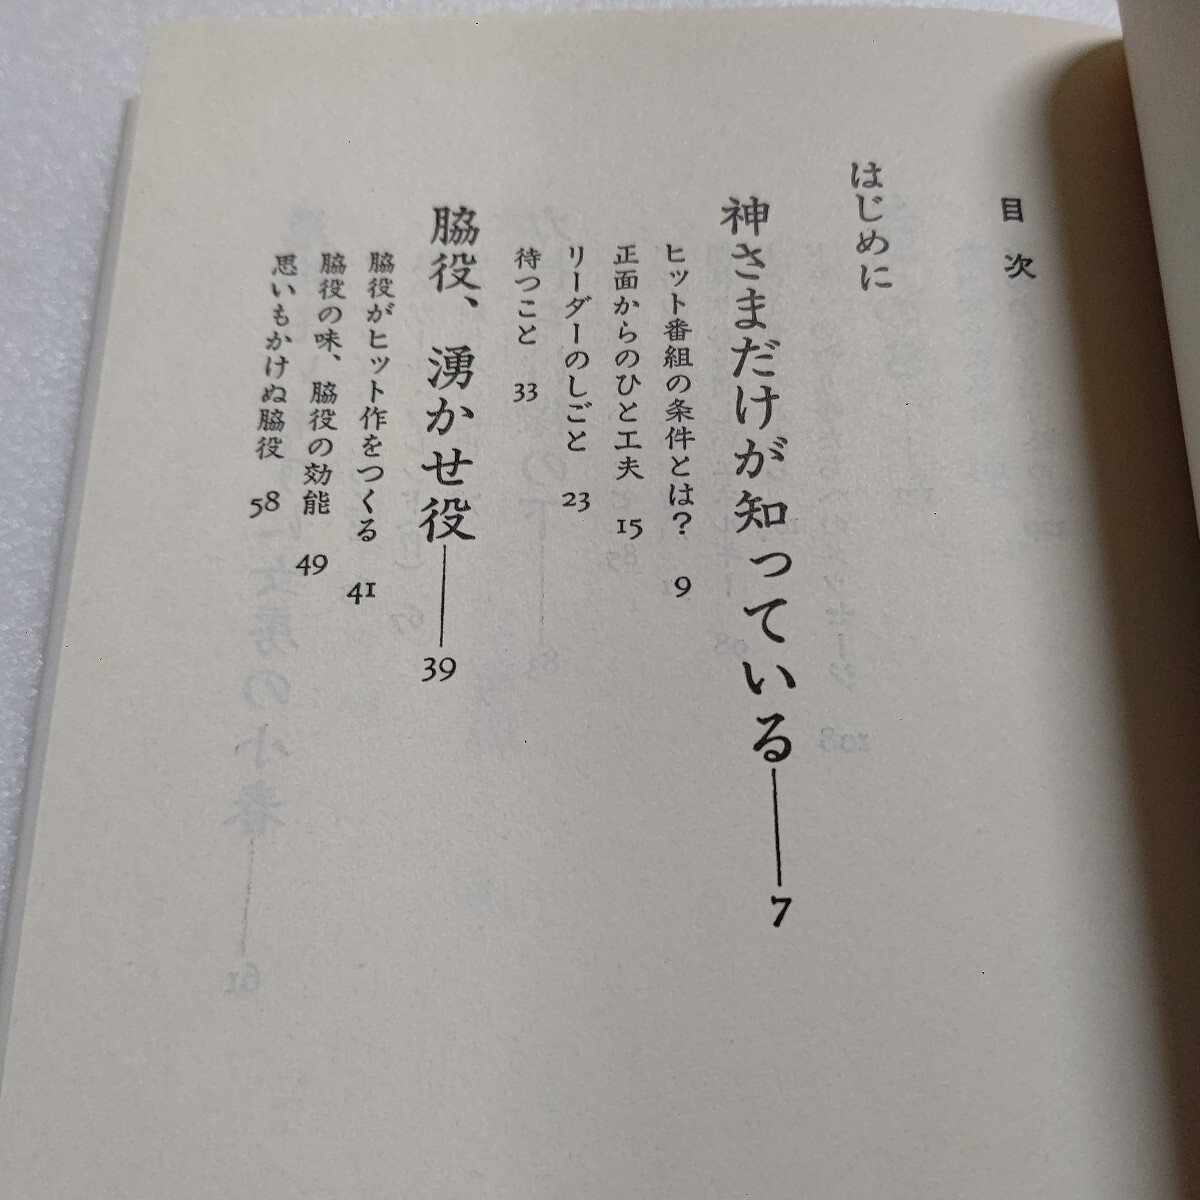 目次
はじめに
神さまだけが知っている――7
ヒット番組の条件とは？ 9
正面からのひと工夫 15
リーダーのしごと 23
待つこと 33
脇役、湧かせ役――39
脇役がヒット作をつくる 41
脇役の味、脇役の効能 49
思いもかけぬ脇役 58